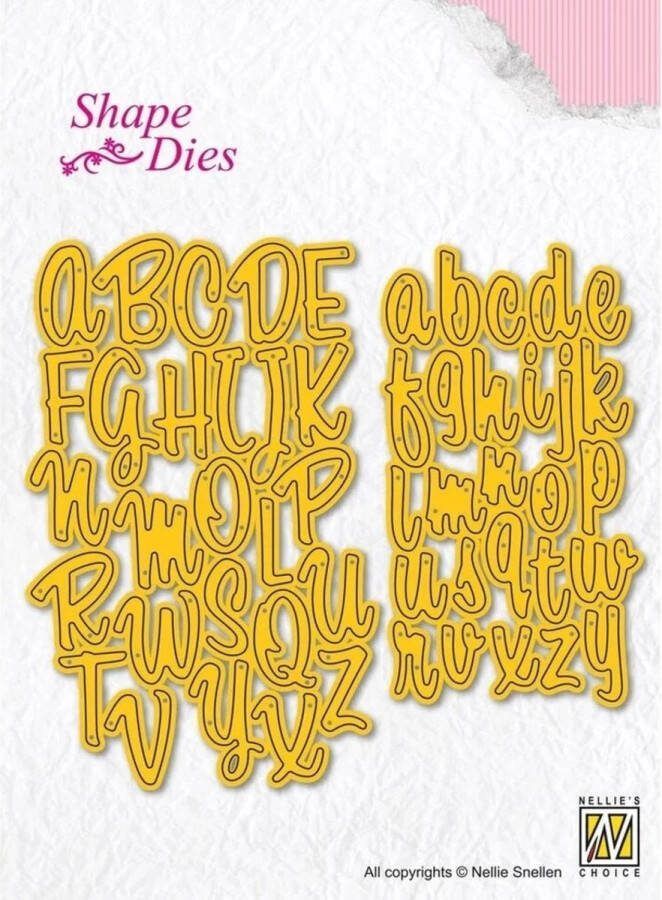 Shape
Dies
ABCDE
FGHIJK
nmOLP
RWSQU
TVYXZ
abcde
fghijk
lmnop
usqtw
rvxzy
NELLIE'S
N
CHOICE
All copyrights © Nellie Snellen